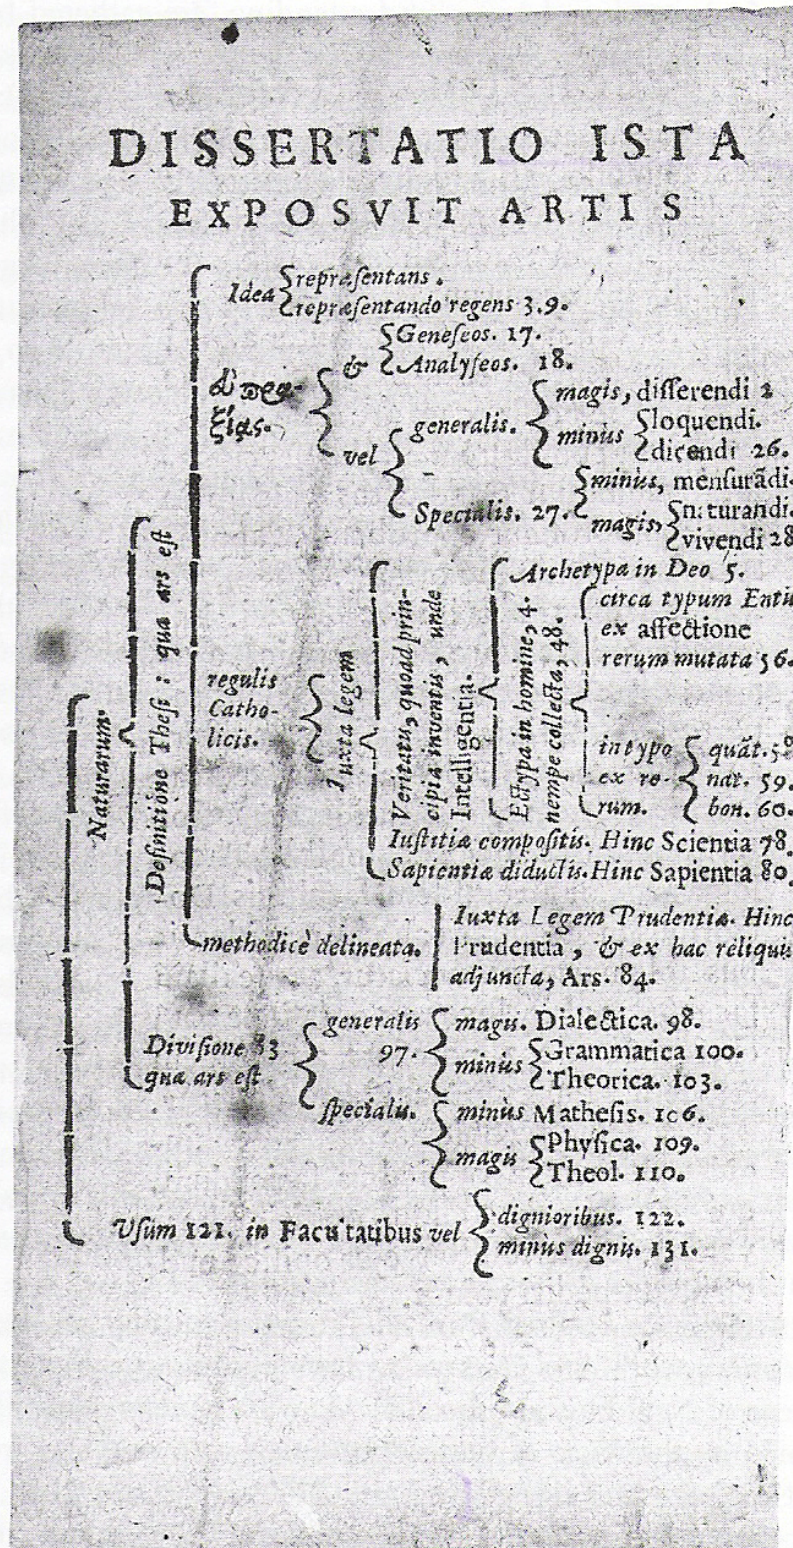 DISSERTATIO ISTA
EXPOSVIT ARTIS
Idea repræsentans.
repræsentando regens 3.9.
Geneseos. 17.
& Analyseos. 18.
magis, disserendi 2
generalis. minùs loquendi.
dicendi 26.
vel
minùs, mensurādi.
Specialis. 27. magis, naturandi.
vivendi 28
Naturarum.
Definitione Thesi: qua ars est
regulis
Catho-
licis.
Iuxta legem
Veritatis, quoad prin-
cipia inventis, unde
Intelligentia.
Archetypa in Deo 5.
Ectypa in homine, 4.
nempe collecta, 48.
circa typum Entis
ex affectione
rerum mutata 56.
in typo quāt. 58
ex re- nat. 59.
rum. bon. 60.
Iustitiæ compositis. Hinc Scientia 78.
Sapientiæ diductis. Hinc Sapientia 80.
methodicè delineata.
Iuxta Legem Prudentiæ. Hinc
Prudentia, & ex hac reliquis
adjuncta, Ars. 84.
Divisione 83
quæ ars est
generalis
97.
magis. Dialectica. 98.
minùs Grammatica 100.
Theorica. 103.
specialis. minùs Mathesis. 106.
magis Physica. 109.
Theol. 110.
Usum 121. in Facultatibus vel dignioribus. 122.
minùs dignis. 131.